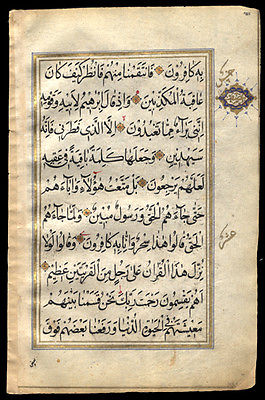 بِهِ كَافِرُونَ فَانْتَقَمْنَا مِنْهُمْ فَانْظُرْ كَيْفَ كَانَ
عَاقِبَةُ الْمُكَذِّبِينَ وَإِذْ قَالَ إِبْرٰهِيمُ لِأَبِيهِ وَقَوْمِهِ
إِنَّنِي بَرَاءٌ مِمَّا تَعْبُدُونَ إِلَّا الَّذِي فَطَرَنِي فَإِنَّهُ
سَيَهْدِينِ وَجَعَلَهَا كَلِمَةً بَاقِيَةً فِي عَقِبِهِ
لَعَلَّهُمْ يَرْجِعُونَ بَلْ مَتَّعْتُ هٰؤُلَاءِ وَآبَاءَهُمْ
حَتَّى جَاءَهُمُ الْحَقُّ وَرَسُولٌ مُبِينٌ وَلَمَّا جَاءَهُمُ
الْحَقُّ قَالُوا هٰذَا سِحْرٌ وَإِنَّا بِهِ كَافِرُونَ وَقَالُوا لَوْلَا
نُزِّلَ هٰذَا الْقُرْآنُ عَلَى رَجُلٍ مِنَ الْقَرْيَتَيْنِ عَظِيمٍ
أَهُمْ يَقْسِمُونَ رَحْمَتَ رَبِّكَ نَحْنُ قَسَمْنَا بَيْنَهُمْ
مَعِيشَتَهُمْ فِي الْحَيٰوةِ الدُّنْيَا وَرَفَعْنَا بَعْضَهُمْ فَوْقَ